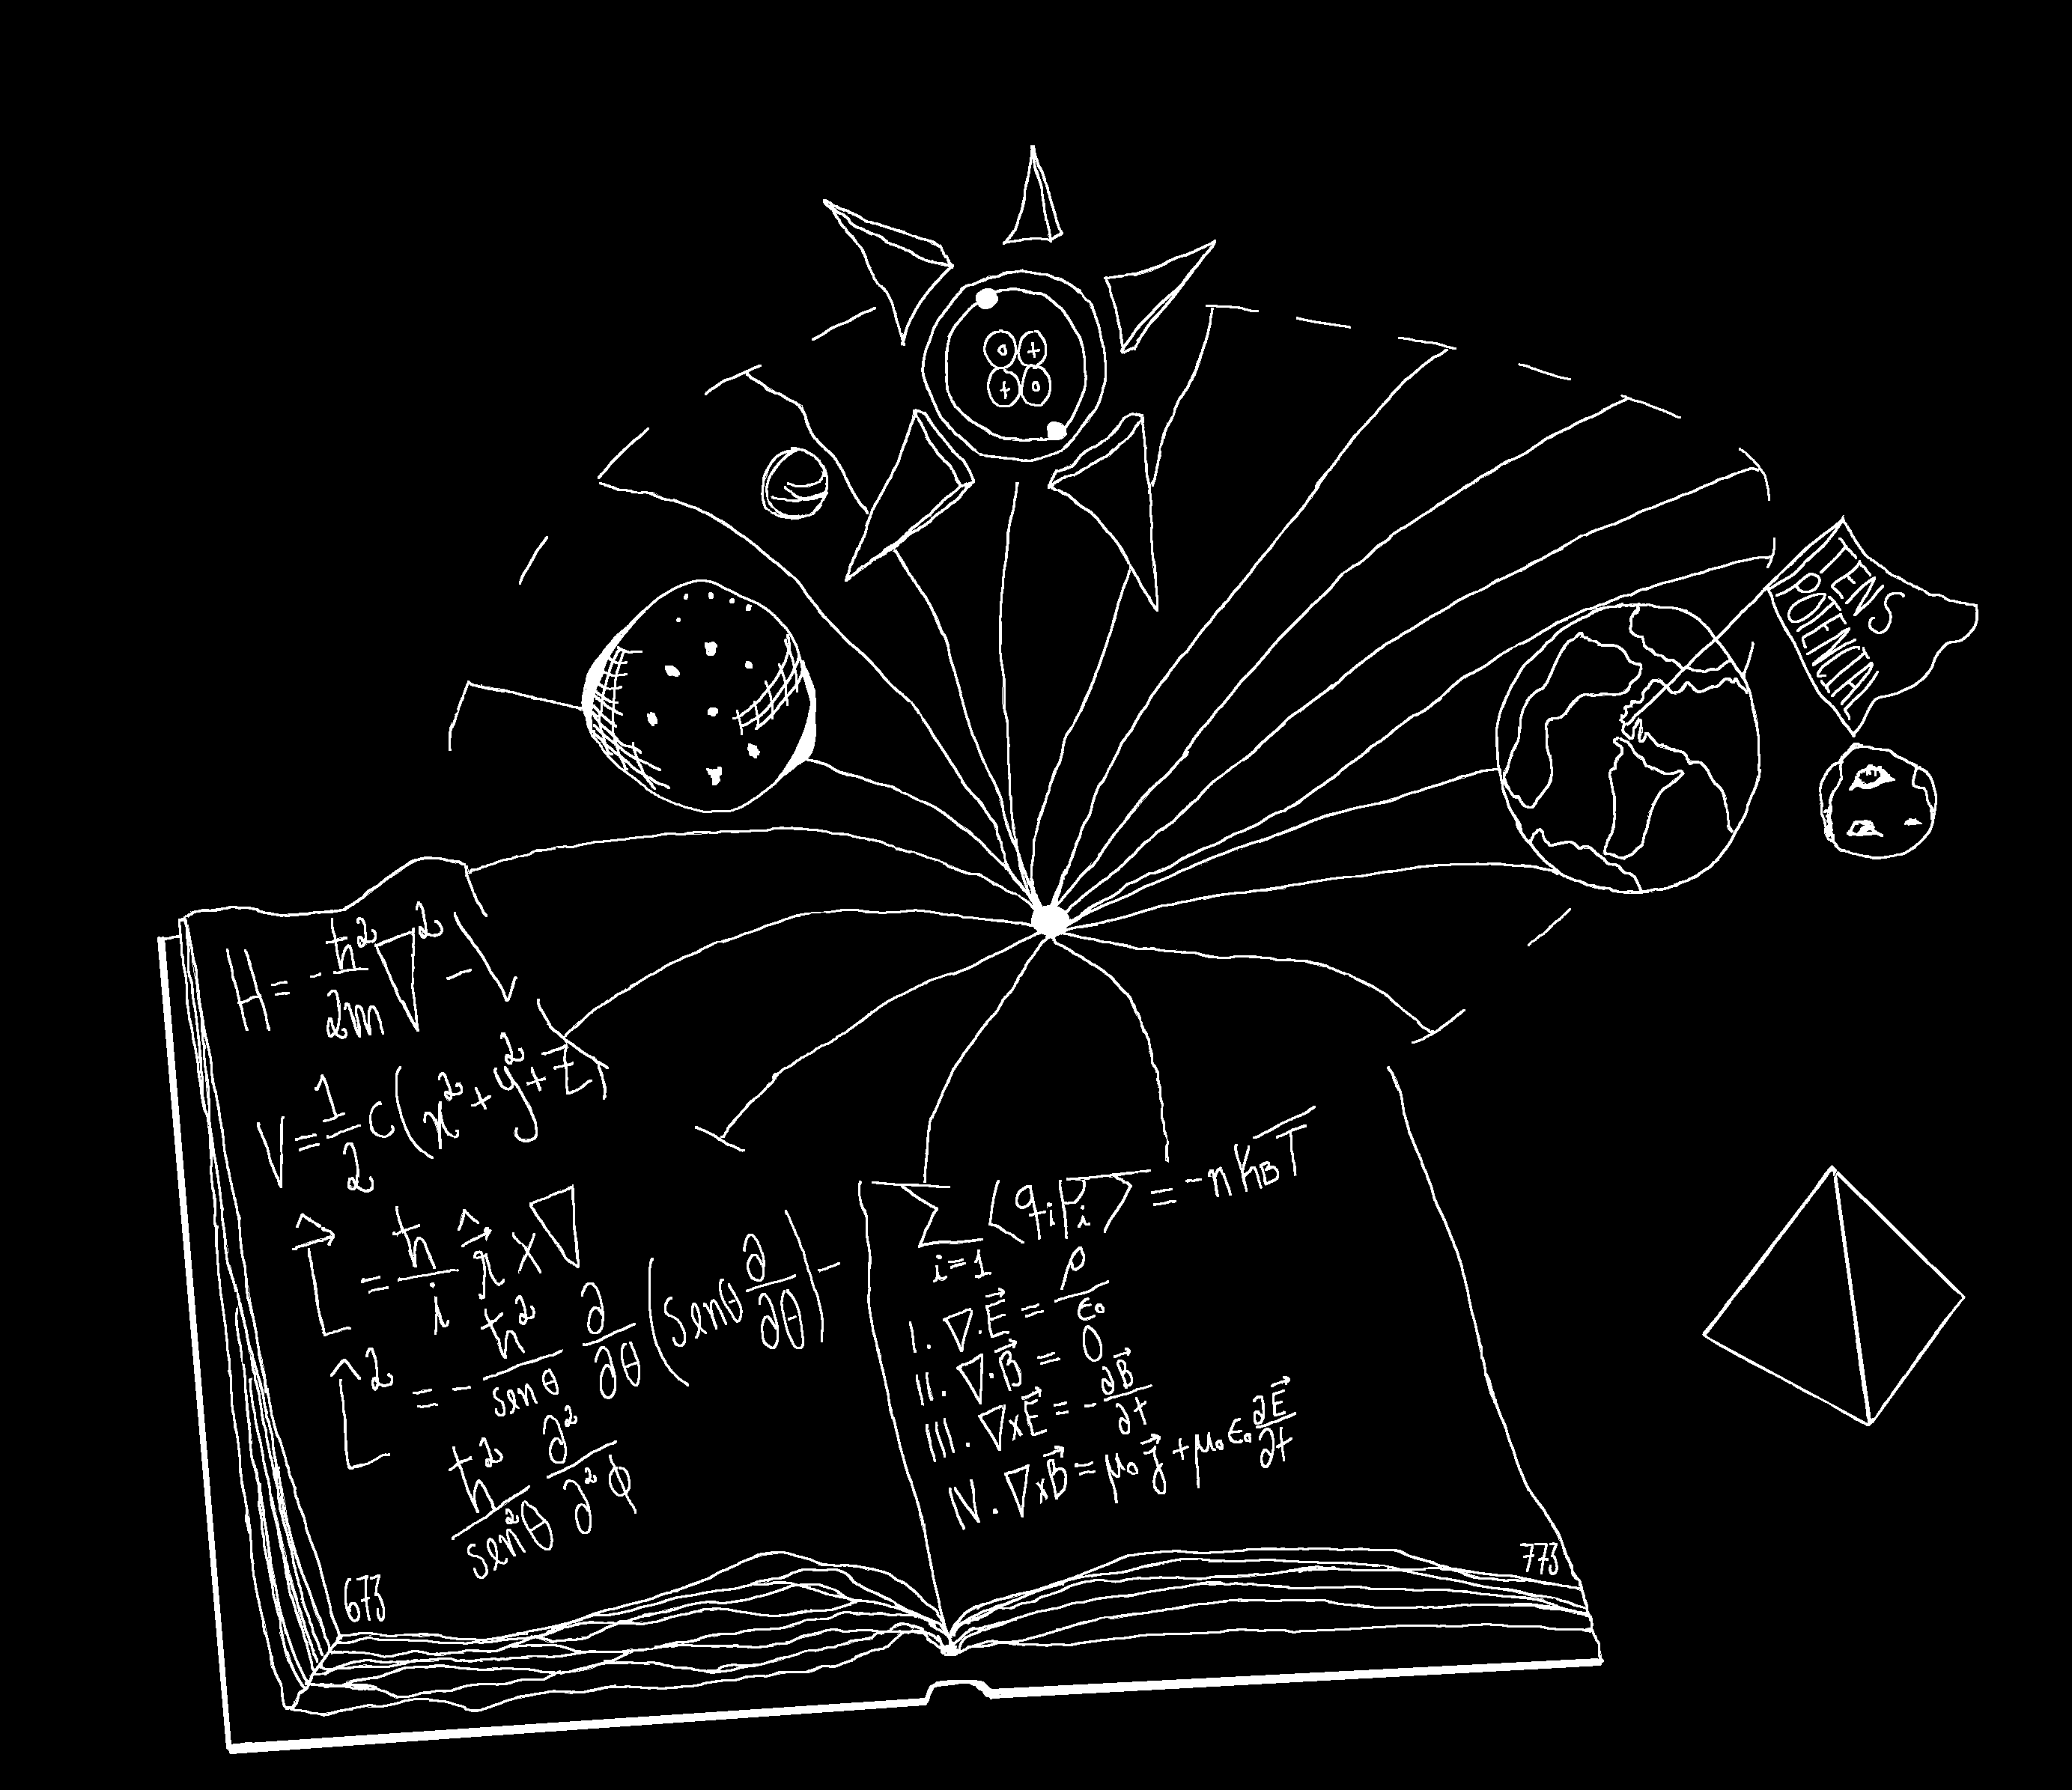 TENS
POTENCIAL
H = -ħ²/2m ∇² - V
V = 1/2 C(x²+y²+z)
L̂⃗ = ħ/i r̂⃗ x ∇
L̂² = - ħ²/senθ ∂/∂θ (senθ ∂/∂θ) -
ħ²/sen²θ ∂²/∂²ϕ
673
∑ i=1 ⟨qᵢpᵢ⟩ = -nK_BT
I. ∇·E⃗ = ρ/ϵ₀
II. ∇·B⃗ = 0
III. ∇xE⃗ = -∂B⃗/∂t
IV. ∇xB⃗ = μ₀j⃗ + μ₀ϵ₀ ∂E⃗/∂t
773